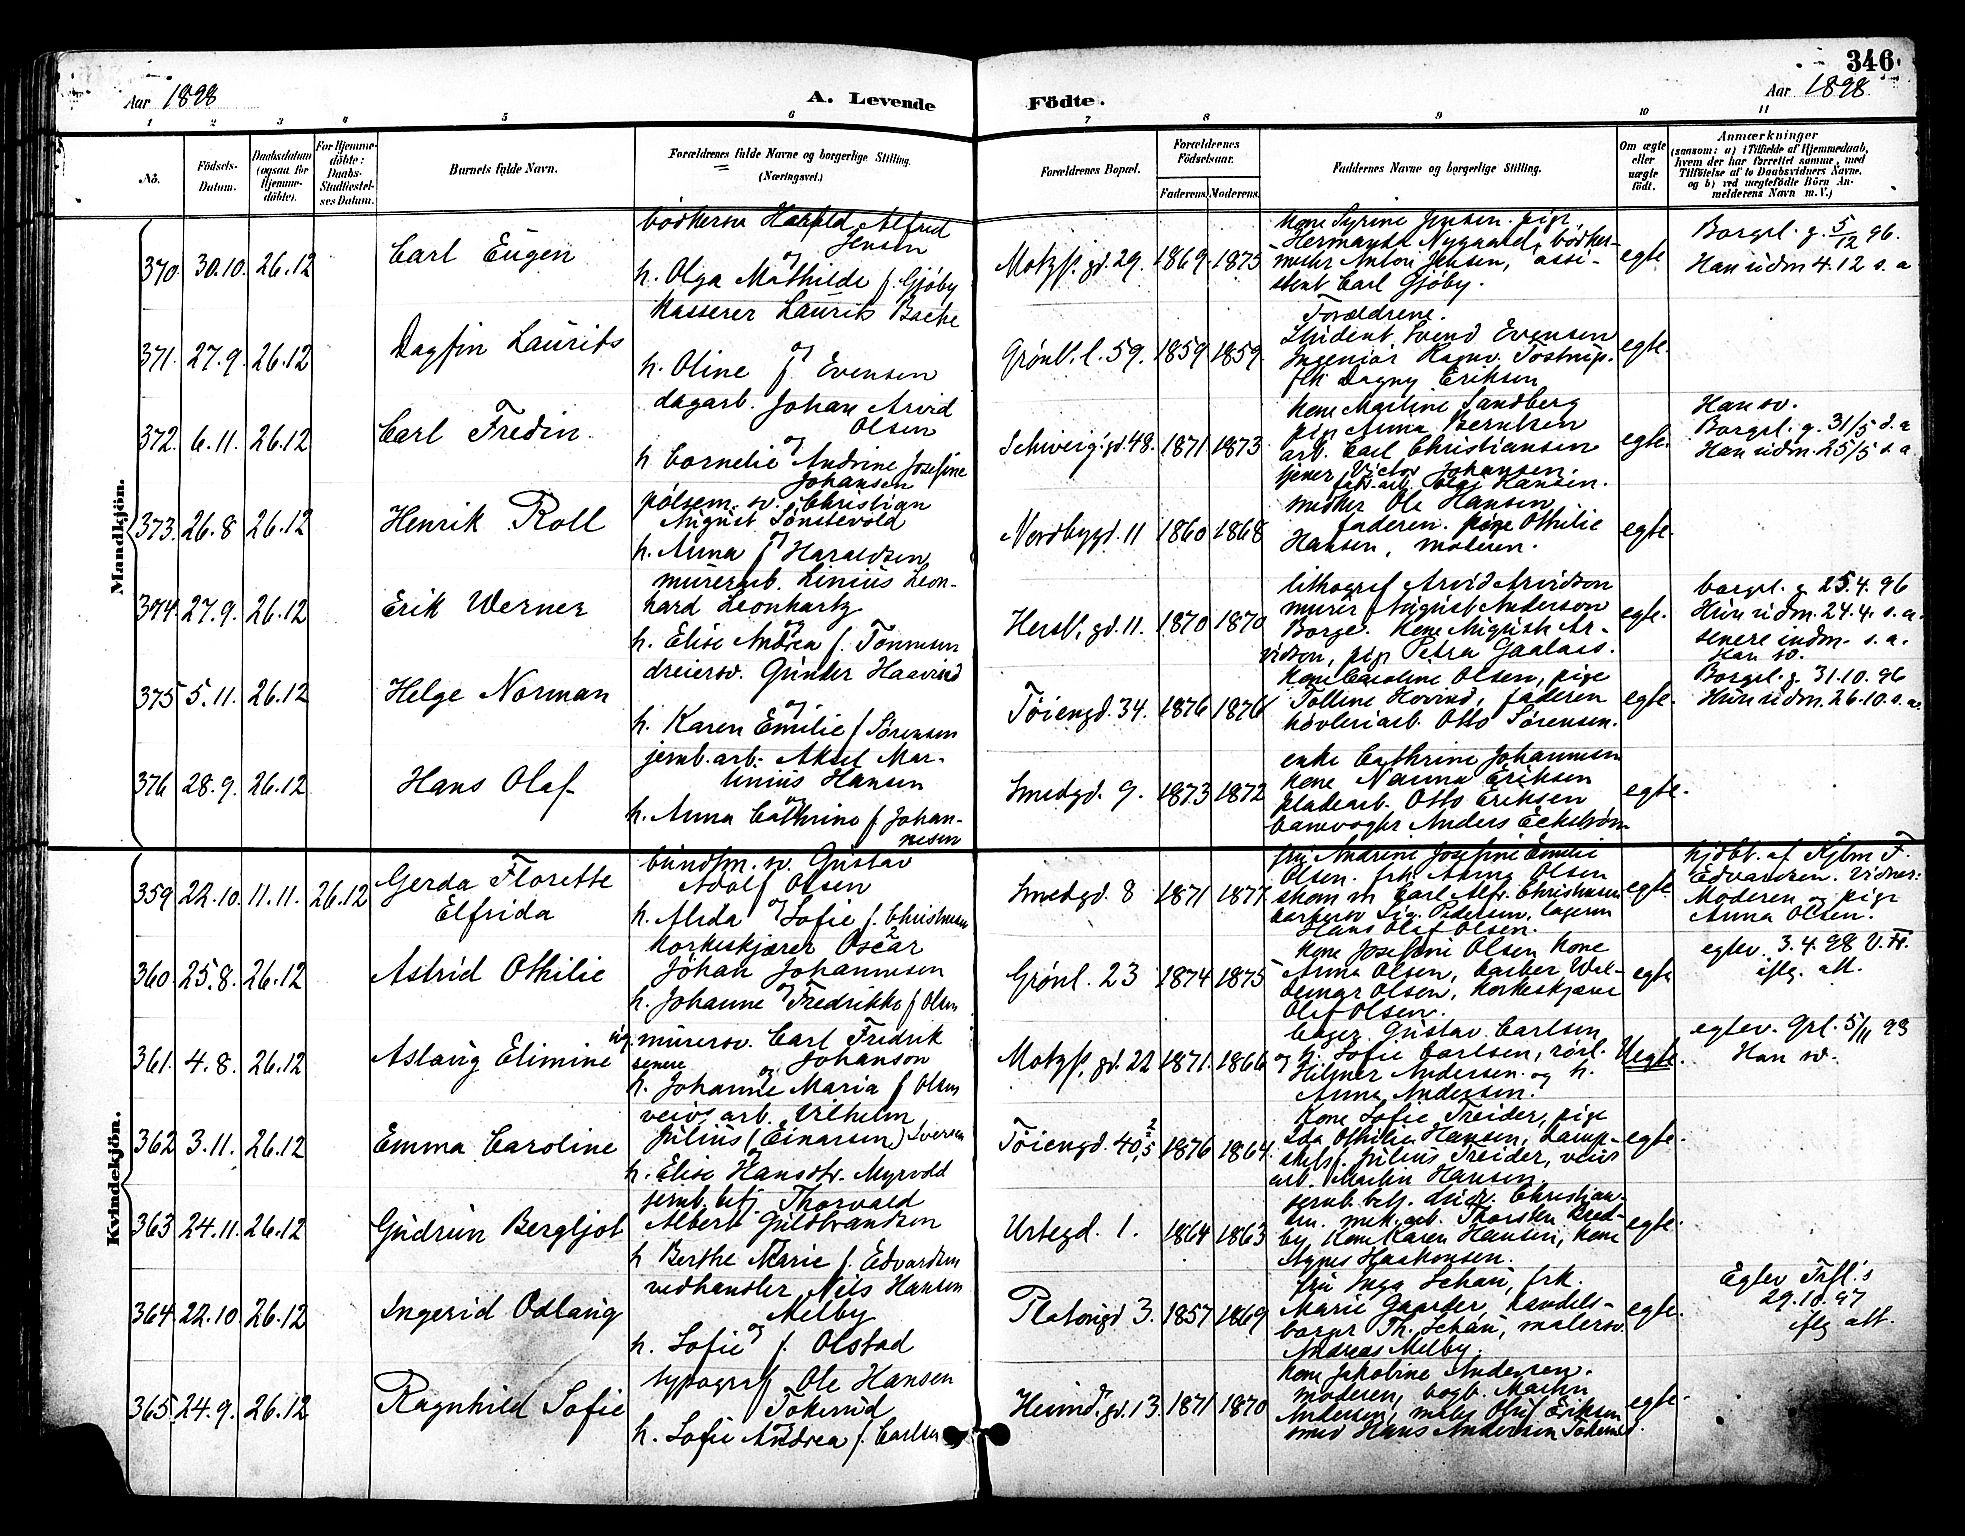 346
Aar 1898
A. Levende Födte.
Aar 1898
1 2 3 4 5 6 7 8 9 10 11
No.
Födsels-Datum.
Daabsdatum (ogsaa for Hjemmedöbte).
For Hjemmedöbte: Daabs-Stadfæstelses Datum.
Barnets fulde Navn.
Forældrenes fulde Navne og borgerlige Stilling. (Næringsvei.)
Forældrenes Bopæl.
Forældrenes Födselsaar.
Faderens. Moderens.
Faddernes Navne og borgerlige Stilling.
Om ægte eller uægte födt.
Anmærkninger
(saasom: a) i Tilfælde af Hjemmedaab, hvem der har forrettet samme, med Tilföielse af to Daabsvidners Navne, og b) ved uægtefödte Börn Anmelderens Navn m.V.)
Mandkjön.
370. 30.10. 26.12
Carl Eugen
bødkersv Harald Alfred
Jensen
og
h. Olga Mathilde f. Gjøby
Motzf. gd. 29. 1869. 1875
Kone Syrine Jensen. pige
Hermanda Nygaard, bødker-
mester Anton Jensen, assi-
stent Carl Gjøby.
egte
Borgel. g. 5/12 96.
Han udm 4.12 s. a
371. 27.9. 26.12
Dagfin Laurits
Kasserer Laurits Bache
og
h. Oline f. Evensen
Grønl. l. 59. 1859 1859.
Forældrene.
Student Svend Evensen
Ingeniør Ragnv. Tostrup.
frk Dagny Eriksen
egte.
372. 6.11. 26.12
Carl Fredin.
dagarb. Johan Arvid
Olsen
og
h. Cornelie Andrine Josefine
Johansen
Schweig. gd. 48. 1871 1873
Kone Martine Sandberg
pige Anna Berntsen
arb. Carl Christiansen
tjener Victor Johansen.
fabr.arb. Olaf Hansen.
egte.
Han sv.
Borgel. g. 31/5 d. a
Han udm. 25/5 s. a
373. 26.8 26.12
Henrik Roll
pølsem. sv. Christian
August Sønstevold
og
h. Anna f. Haraldsen
Nordbygd. 11 1860 1868
snedker Ole Hansen,
faderen. pige Othilie
Hansen, moderen.
egte.
374. 27.9. 26.12
Erik Werner
murerarb. Linius Leon-
hard Leonhartz
og
h. Elise Andrea f. Tønnesen
Hersl. gd. 11. 1870 1870
lithograf Arvid Arvidson
murer August Anderson
Borge. Kone Augusta Ar-
vidson, pige Petra Gaalaas.
egte.
borgel. g 25.4. 96
Hun udm. 24.4. s. a.
senere indm. s. a.
Han sv.
375 5.11. 26.12
Helge Norman
dreiersv. Gunder Haavind
og
h. Karen Emilie f Sørensen
Tøiengd. 34. 1876 1876
Kone Caroline Olsen, pige
Tolline Hovind, faderen
høvleriarb. Otto Sørensen.
egte.
Borgel. g 31.10. 96
Hun udm. 26.10. s. a.
376 28.9. 26.12
Hans Olaf
jernb. arb. Aksel Mar-
tinius Hansen
og
h. Anna Cathrine f Johan-
nesen
Smedgd. 9. 1873 1872
enke Cathrine Johannesen
Kone Nanna Eriksen
pladearb. Otto Eriksen
banevogter Anders Eckstrøm
egte.
Kvindekjön.
359 22.10. 11.11. 26.12
Gerda Florette
Elfrida
bundtm. sv. Gustav
Adolf Olsen
og
h. Alida Sofie f. Christensen
Smedgd. 8 1871 1877.
fru Andrine Josefine Emilie
Olsen. frk Anna Olsen
skom m Carl Alfr. Christensen
barbersv Sig. Pedersen, lagerm
Hans Olaf Olsen.
egte
hjdbt. af Kjbm F.
Edvardsen. Vidner:
Moderen og pige
Anna Olsen.
360. 25.8. 26.12
Astrid Othilie
korkeskjærer Oscar
Johan Johannesen
og
h. Johanne Fredrikke f Olsen
Grønl. 23 1874 1875
Kone Josefine Olsen Kone
Anna Olsen, barber Wal-
demar Olsen, korkeskjærer
Olaf Olsen.
egte
egtev. 3.4. 98 V. Fr.
iflg. att.
361. 4.8. 26.12
Aslaug Elimine
ug. murersv. Carl Fredrik
senere Johanson
og
h. Johanne Maria f Olsen
Motzf. gd. 22 1871. 1866
bager Gustav Carlsen
og h. Sofie Carlsen, rørl.
Hilmer Andersen og h.
Anna Andersen.
Uegte.
egtev. Grl. 5/11 98
Han sv.
362 3.11. 26.12
Emma Caroline
veivs arb. Vilhelm
Julius (Einarsen) Iversen
og
h. Elise Hansdtr. Myrvold
Tøiengd. 40,5 1876 1864.
Kone Sofie Treider, pige
Ida Othilie Hansen, Lamp-
Julius Treider, veivs
arb. Martin Hansen.
egte.
363 24.11. 26.12
Gudrun Bergljot
jernb. betj. Thorvald
Albert Guldbrandsen
h Berthe Marie f. Edvardsen
Urtegd. 1. 1864 1863
jernb. betj. Christian-
sen. mek. arb. Thorsten Bred-
by, Kone Karen Hansen, Kone
Agnes Haakonsen.
egte.
364. 22.10 26.12
Ingerid Odlaug
vedhandler Nils Hansen
Melby
og
h. Sofie f. Olstad
Platousgd 3. 1857 1869
fru Inga Schau, frk.
Marie Gaarder, handels-
borger Th. Schau, malersv.
Andreas Melby.
egte.
Egtev Trefl.s
29.10. 97
iflg att.
365. 24.9. 26.12
Ragnhild Sofie
typograf Ole Hansen
Tokerud
h. Sofie Andrea f. Carlsen
Heimd. gd. 13. 1871 1870
Kone Jakobine Andersen.
moderen, bogb. Martin
Andersen, maler Olaf Eriksen
smed Hans Andersen Tokerud.
egte.